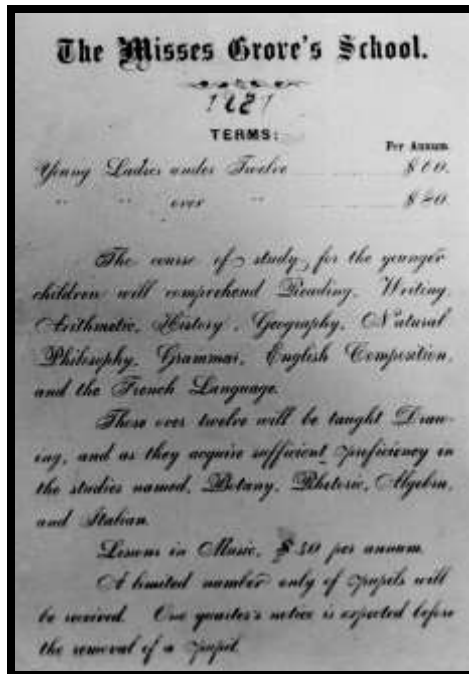 The Misses Grove's School.
TERMS:
Per Annum.
Young Ladies under Twelve
" " over "
The course of study, for the younger
children will comprehend Reading, Writing,
Arithmetic, History, Geography, Natural
Philosophy, Grammar, English Composition,
and the French Language.
Those over twelve will be taught Draw-
ing, and as they acquire sufficient proficiency in
the studies named, Botany, Rhetoric, Algebra,
and Italian.
Lessons in Music, per annum.
A limited number only of pupils will
be received. One quarter's notice is expected before
the removal of a pupil.